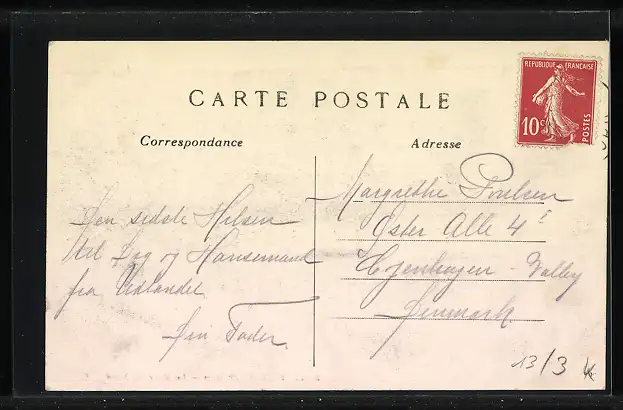 CARTE POSTALE
Correspondance
Adresse
REPUBLIQUE FRANÇAISE
10 c
POSTES
Den sidste Hilsen
til Dig og Hansemand
fra Udlandet
Din Fader.
Margrethe Poulsen
Øster Alle 4
Kjøbenhagen - Valby
Denmark
13/3